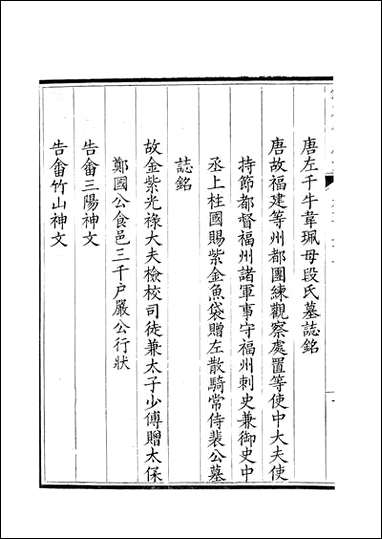 唐左千牛韋珮母段氏墓誌銘
唐故福建等州都團練觀察處置等使中大夫使
持節都督福州諸軍事守福州刺史兼御史中
丞上柱國賜紫金魚袋贈左散騎常侍裴公墓
誌銘
故金紫光祿大夫檢校司徒兼太子少傅贈太保
鄭國公食邑三千户嚴公行狀
告畬三陽神文
告畬竹山神文